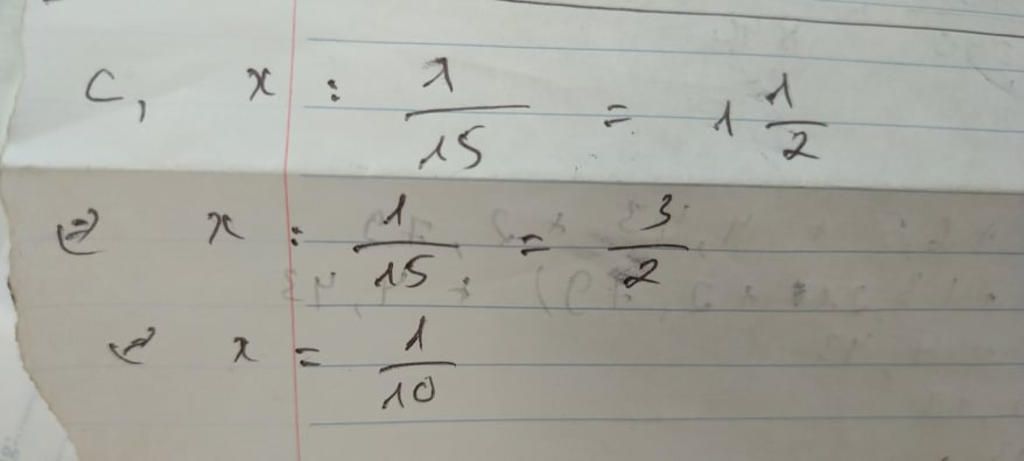 C, x : 1/15 = 1 1/2
⇔ x : 1/15 = 3/2
⇔ x = 1/10